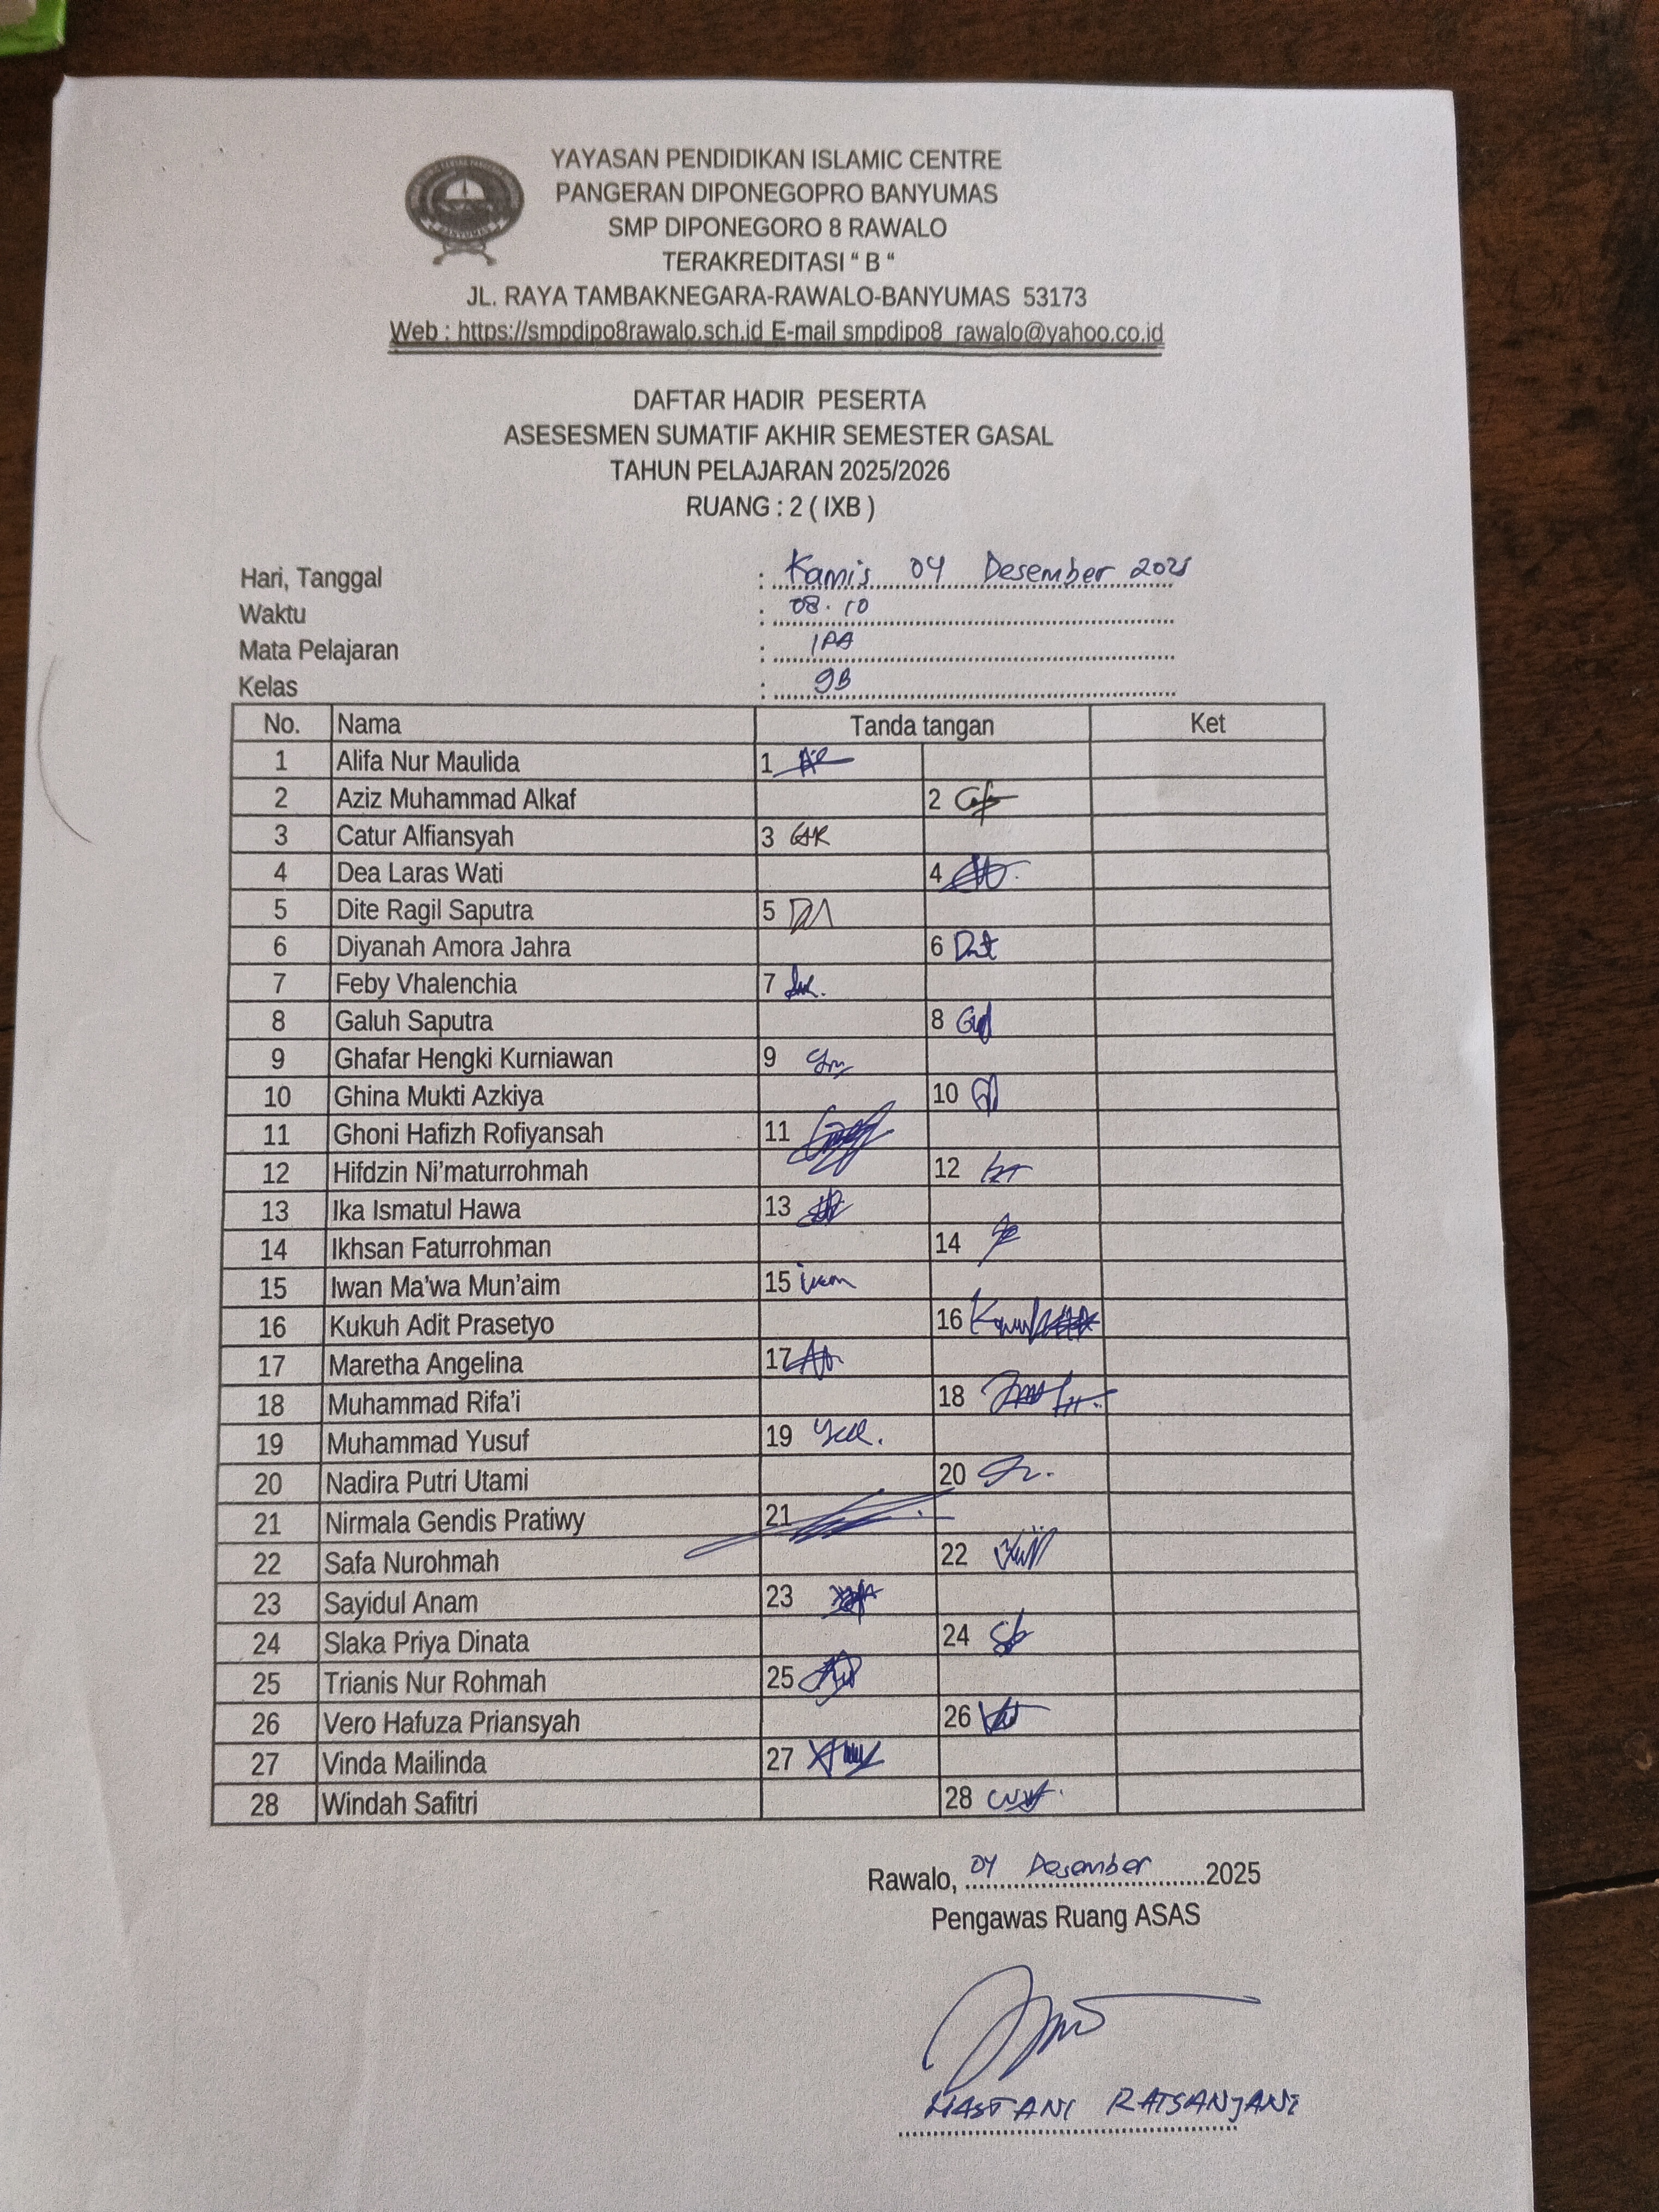 YAYASAN PENDIDIKAN ISLAMIC CENTRE
PANGERAN DIPONEGOPRO BANYUMAS
SMP DIPONEGORO 8 RAWALO
TERAKREDITASI “ B “
JL. RAYA TAMBAKNEGARA-RAWALO-BANYUMAS 53173
Web : https://smpdipo8rawalo.sch.id E-mail smpdipo8_rawalo@yahoo.co.id
BANYUMAS
DAFTAR HADIR PESERTA
ASESESMEN SUMATIF AKHIR SEMESTER GASAL
TAHUN PELAJARAN 2025/2026
RUANG : 2 ( IXB )
Hari, Tanggal : Kamis 04 Desember 2025
Waktu : 08.10
Mata Pelajaran : IPA
Kelas : 9B
No. Nama Tanda tangan Ket
1 Alifa Nur Maulida 1
2 Aziz Muhammad Alkaf 2
3 Catur Alfiansyah 3
4 Dea Laras Wati 4
5 Dite Ragil Saputra 5
6 Diyanah Amora Jahra 6
7 Feby Vhalenchia 7
8 Galuh Saputra 8
9 Ghafar Hengki Kurniawan 9
10 Ghina Mukti Azkiya 10
11 Ghoni Hafizh Rofiyansah 11
12 Hifdzin Ni’maturrohmah 12
13 Ika Ismatul Hawa 13
14 Ikhsan Faturrohman 14
15 Iwan Ma’wa Mun’aim 15
16 Kukuh Adit Prasetyo 16
17 Maretha Angelina 17
18 Muhammad Rifa’i 18
19 Muhammad Yusuf 19
20 Nadira Putri Utami 20
21 Nirmala Gendis Pratiwy 21
22 Safa Nurohmah 22
23 Sayidul Anam 23
24 Slaka Priya Dinata 24
25 Trianis Nur Rohmah 25
26 Vero Hafuza Priansyah 26
27 Vinda Mailinda 27
28 Windah Safitri 28
Rawalo, 04 Desember 2025
Pengawas Ruang ASAS
MASTANI RATSANJANI